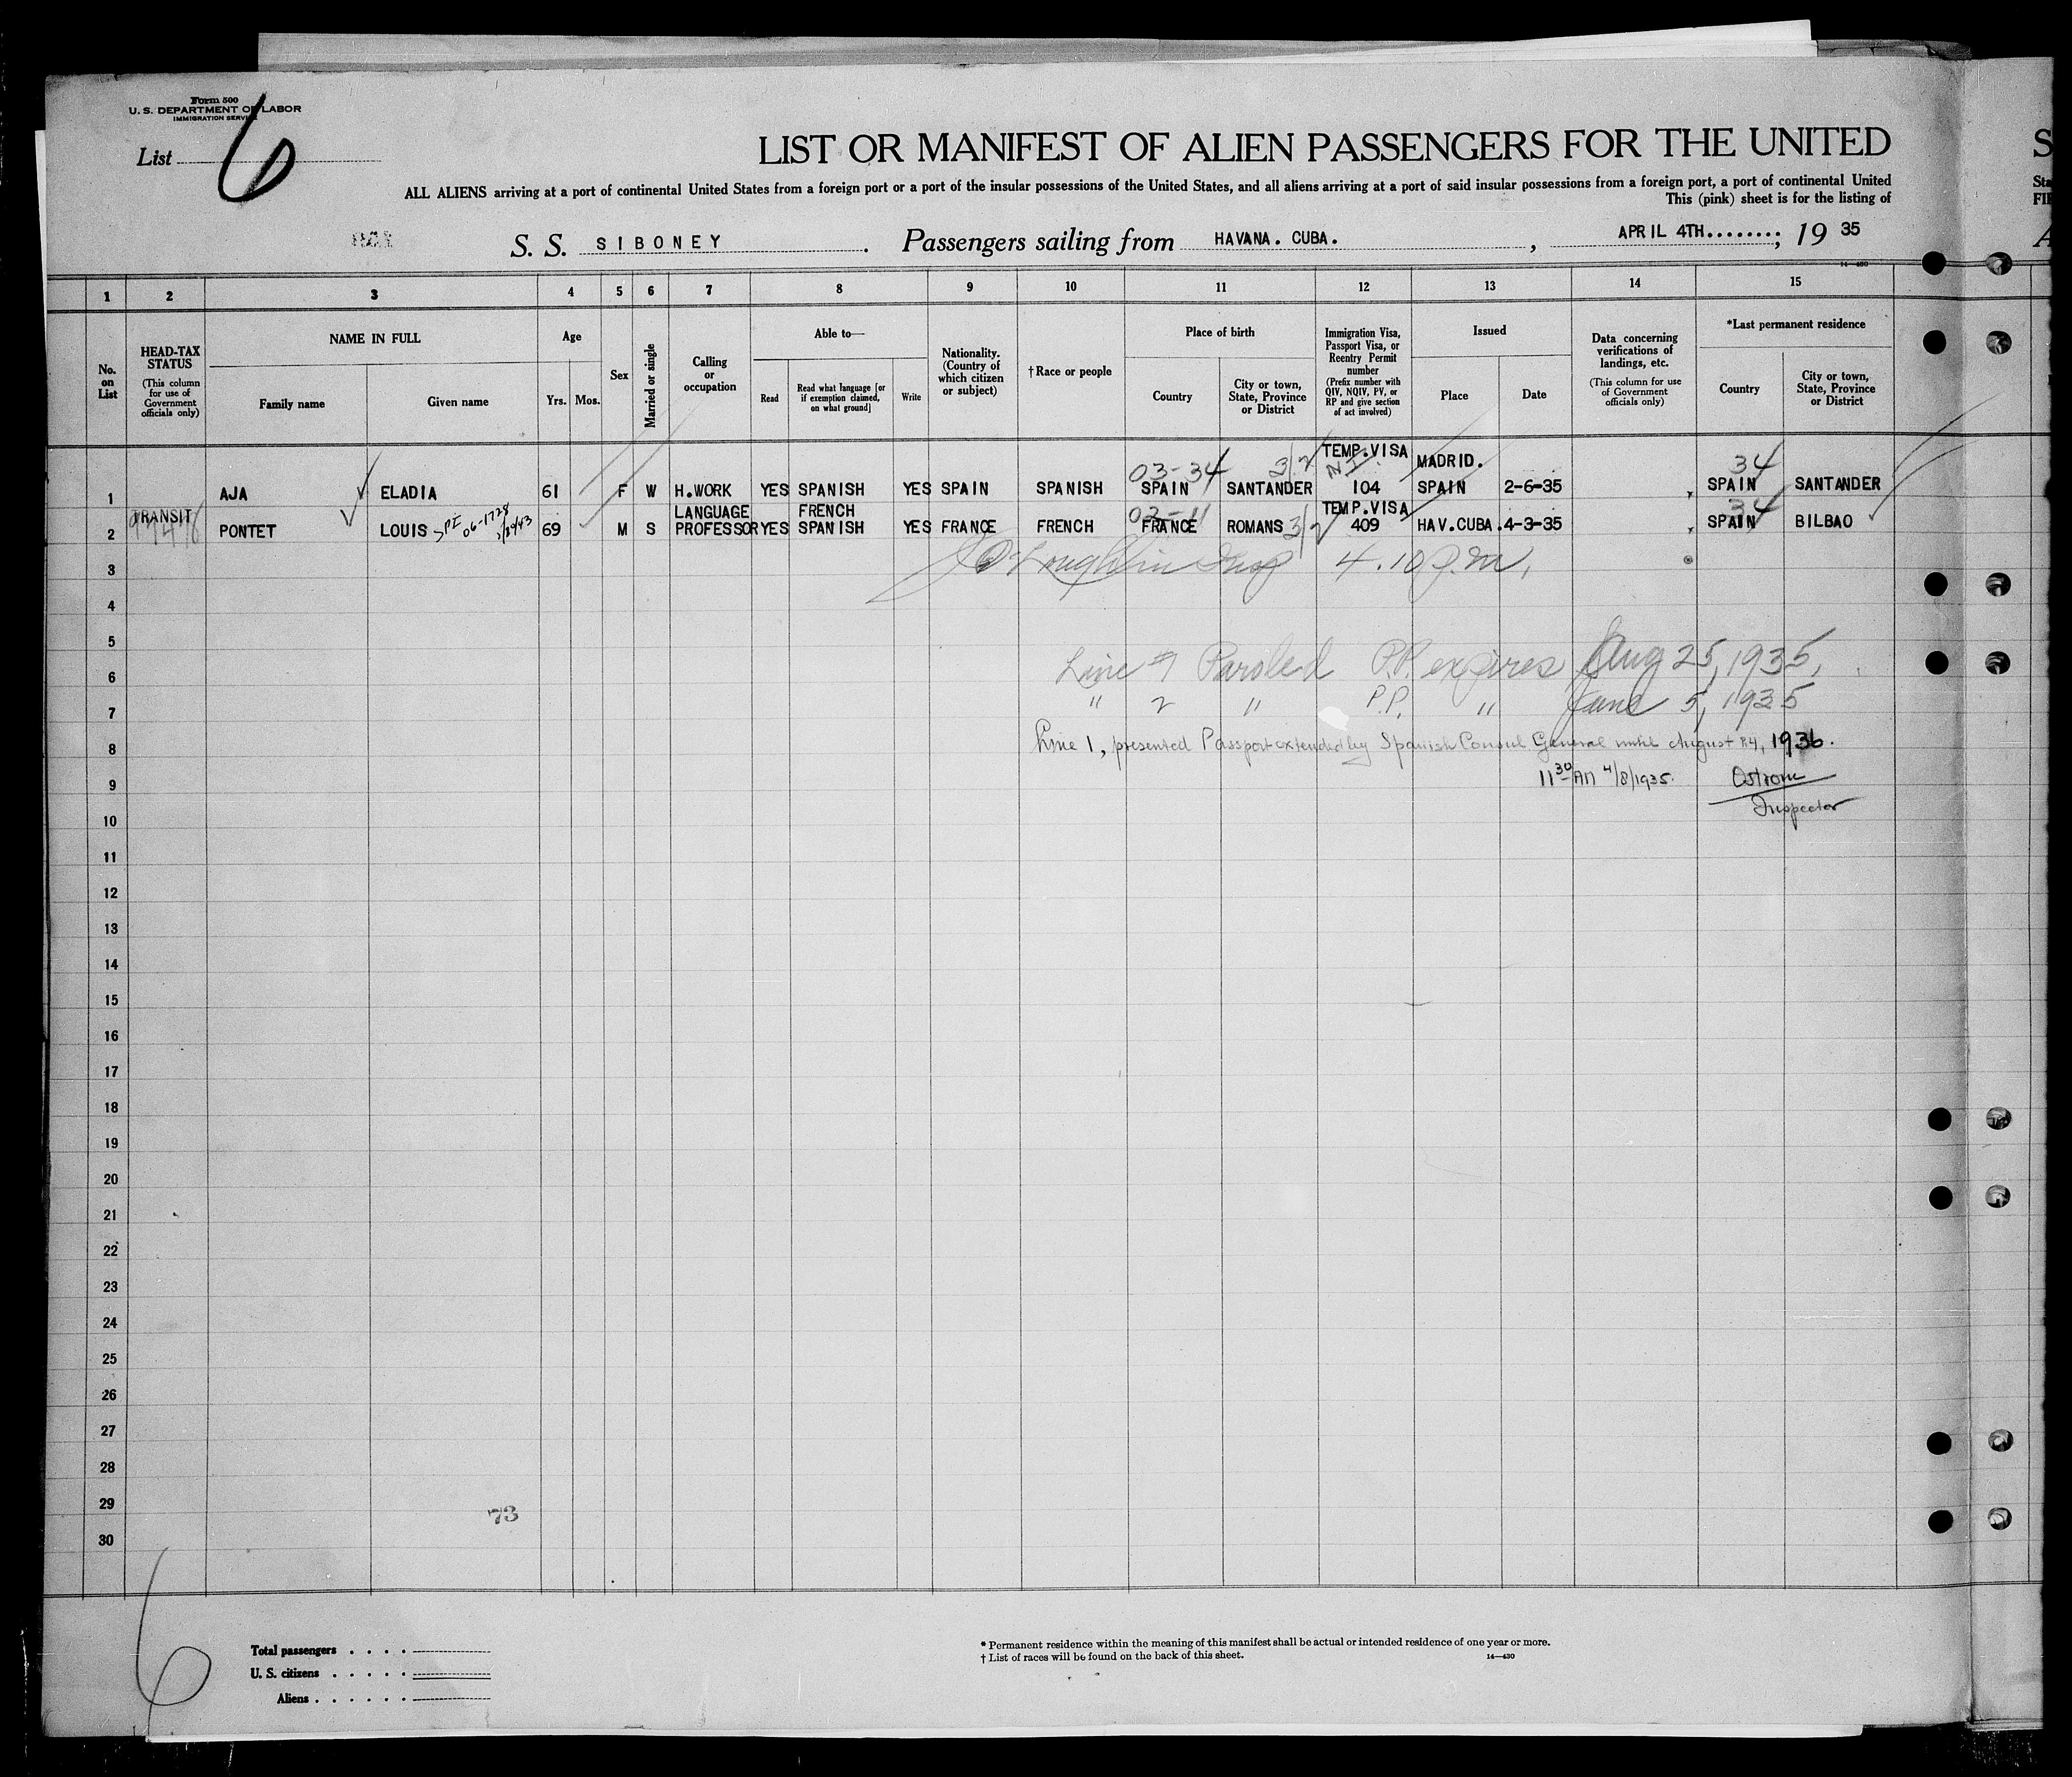 Form 500
U. S. DEPARTMENT OF LABOR
IMMIGRATION SERVICE
List 6
LIST OR MANIFEST OF ALIEN PASSENGERS FOR THE UNITED
ALL ALIENS arriving at a port of continental United States from a foreign port or a port of the insular possessions of the United States, and all aliens arriving at a port of said insular possessions from a foreign port, a port of continental United
This (pink) sheet is for the listing of
S. S. SIBONEY. Passengers sailing from HAVANA. CUBA. , APRIL 4TH........; 19 35
14—430
1 2 3 4 5 6 7 8 9 10 11 12 13 14 15
No. on List
HEAD-TAX STATUS (This column for use of Government officials only)
NAME IN FULL
Family name
Given name
Age
Yrs. Mos.
Sex
Married or single
Calling or occupation
Able to—
Read
Read what language [or if exemption claimed, on what ground]
Write
Nationality. (Country of which citizen or subject)
†Race or people
Place of birth
Country
City or town, State, Province or District
Immigration Visa, Passport Visa, or Reentry Permit number (Prefix number with QIV, NQIV, PV, or RP and give section of act involved)
Issued
Place
Date
Data concerning verifications of landings, etc. (This column for use of Government officials only)
*Last permanent residence
Country
City or town, State, Province or District
03-34 3/2 TEMP.VISA N.I. MADRID. 34
1 AJA ELADIA 61 F W H.WORK YES SPANISH YES SPAIN SPANISH SPAIN SANTANDER 104 SPAIN 2-6-35 SPAIN SANTANDER
TRANSIT LANGUAGE FRENCH 02-11 TEMP.VISA 34
2 PONTET LOUIS 06-1728 69 M S PROFESSOR YES SPANISH YES FRANCE FRENCH FRANCE ROMANS 3/2 409 HAV.CUBA. 4-3-35 SPAIN BILBAO
3 O'Loughlin Insp 4.10 P.M.
4
5
6 Line #1 Paroled P.P. expires Aug 25, 1935,
7 " 2 " P.P. " June 5, 1935
8 Line 1, presented Passport extended by Spanish Consul General until August 24, 1936.
9 11 30 AM 4/8/1935. Ostrom
10 Inspector
11
12
13
14
15
16
17
18
19
20
21
22
23
24
25
26
27
28
29
73
30
6
Total passengers . . . .
U. S. citizens . . . . .
Aliens . . . . . .
* Permanent residence within the meaning of this manifest shall be actual or intended residence of one year or more.
† List of races will be found on the back of this sheet.
14—430